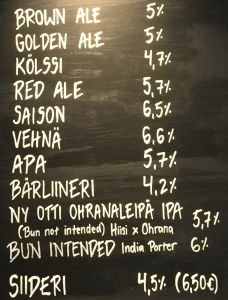 BROWN ALE 5%
GOLDEN ALE 5%
KÖLSSI 4,7%
RED ALE 5,7%
SAISON 6,5%
VEHNÄ 6,6%
APA 5,7%
BÄRLIINERI 4,2%
NY OTTI OHRANALEIPÄ IPA
(Bun not intended) Hiisi x Ohrana 5,7%
BUN INTENDED India Porter 6%
SIIDERI 4,5% (6,50€)